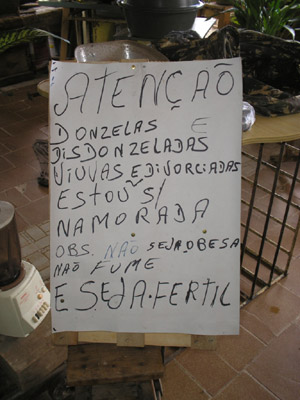 ATENÇAÕ
DONZELAS E
DISDONZELADAS
VIUVAS E DIVORCIADAS
ESTOU S/
NAMORADA
OBS. NÃO SEJA OBESA
NÃO FUME
E SEJA. FERTIL